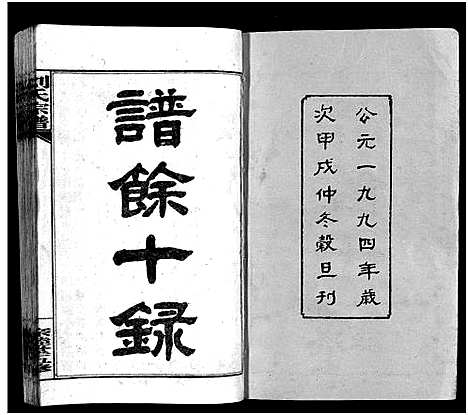 公元一九九四年歲
次甲戌仲冬穀旦刊
譜餘十録
刘氏宗譜